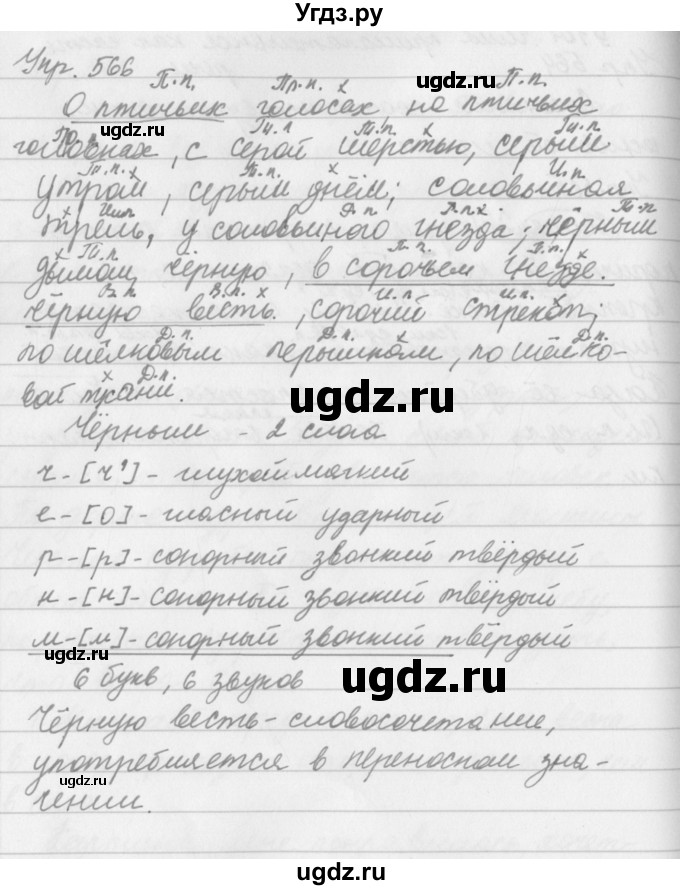 Угдз.ру
Упр. 566
П.п. Пр.п. х П.п.
О птичьих голосах на птичьих
П.п. Тв.п. х Тв.п.
головках, с серой шерстью, серым
Т.п. х Т.п. х И.п.
утром, серым днём; соловьиная
х И.п. Р.п. Р.п. х Т.п.
трель, у соловьиного гнезда; чёрным
х Т.п. П.п. П.п.
дымом, чёрную, в сорочьем гнезде.
В.п. В.п. х И.п. И.п. х
чёрную весть, сорочий стрекот;
Д.п. Д.п. х Д.п.
по шёлковым перышкам, по шёлко-
х Д.п.
вой ткани.
Чёрным - 2 слога
ч-[ч']-глухой мягкий
е-[о]-гласный ударный
р-[р]-сонорный звонкий твёрдый
н-[н]-сонорный звонкий твёрдый
м-[м]-сонорный звонкий твёрдый
6 букв, 6 звуков
Чёрную весть-словосочетание,
употребляется в переносном зна-
чении.
ugdz.ru
ugdz.ru
ugdz.ru
ugdz.ru
ugdz.ru
ugdz.ru
ugdz.ru
ugdz.ru